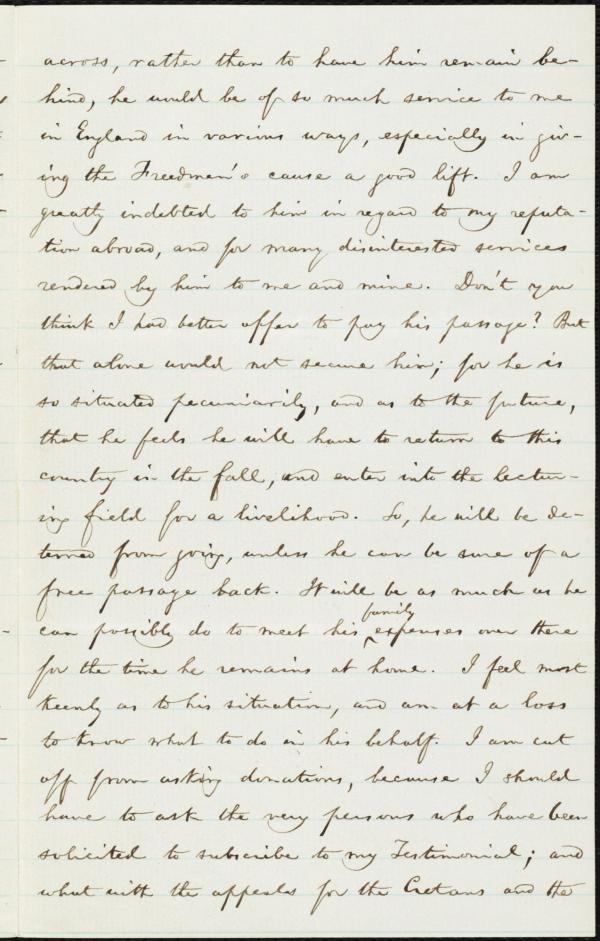 across, rather than to have him remain be-
hind, he would be of so much service to me
in England in various ways, especially in giv-
ing the Freedmen's cause a good lift. I am
greatly indebted to him in regard to my reputa-
tion abroad, and for many disinterested services
rendered by him to me and mine. Don't you
think I had better offer to pay his passage? But
that alone would not secure him; for he is
so situated pecuniarily, and as to the future,
that he feels he will have to return to this
country in the fall, and enter into the lectur-
ing field for a livelihood. So, he will be de-
terred from going, unless he can be sure of a
free passage back. It will be as much as he
can possibly do to meet his family expenses over there
for the time he remains at home. I feel most
keenly as to his situation, and am at a loss
to know what to do in his behalf. I am cut
off from asking donations, because I should
have to ask the very persons who have been
solicited to subscribe to my Testimonial; and
what with the appeals for the Cretans and the